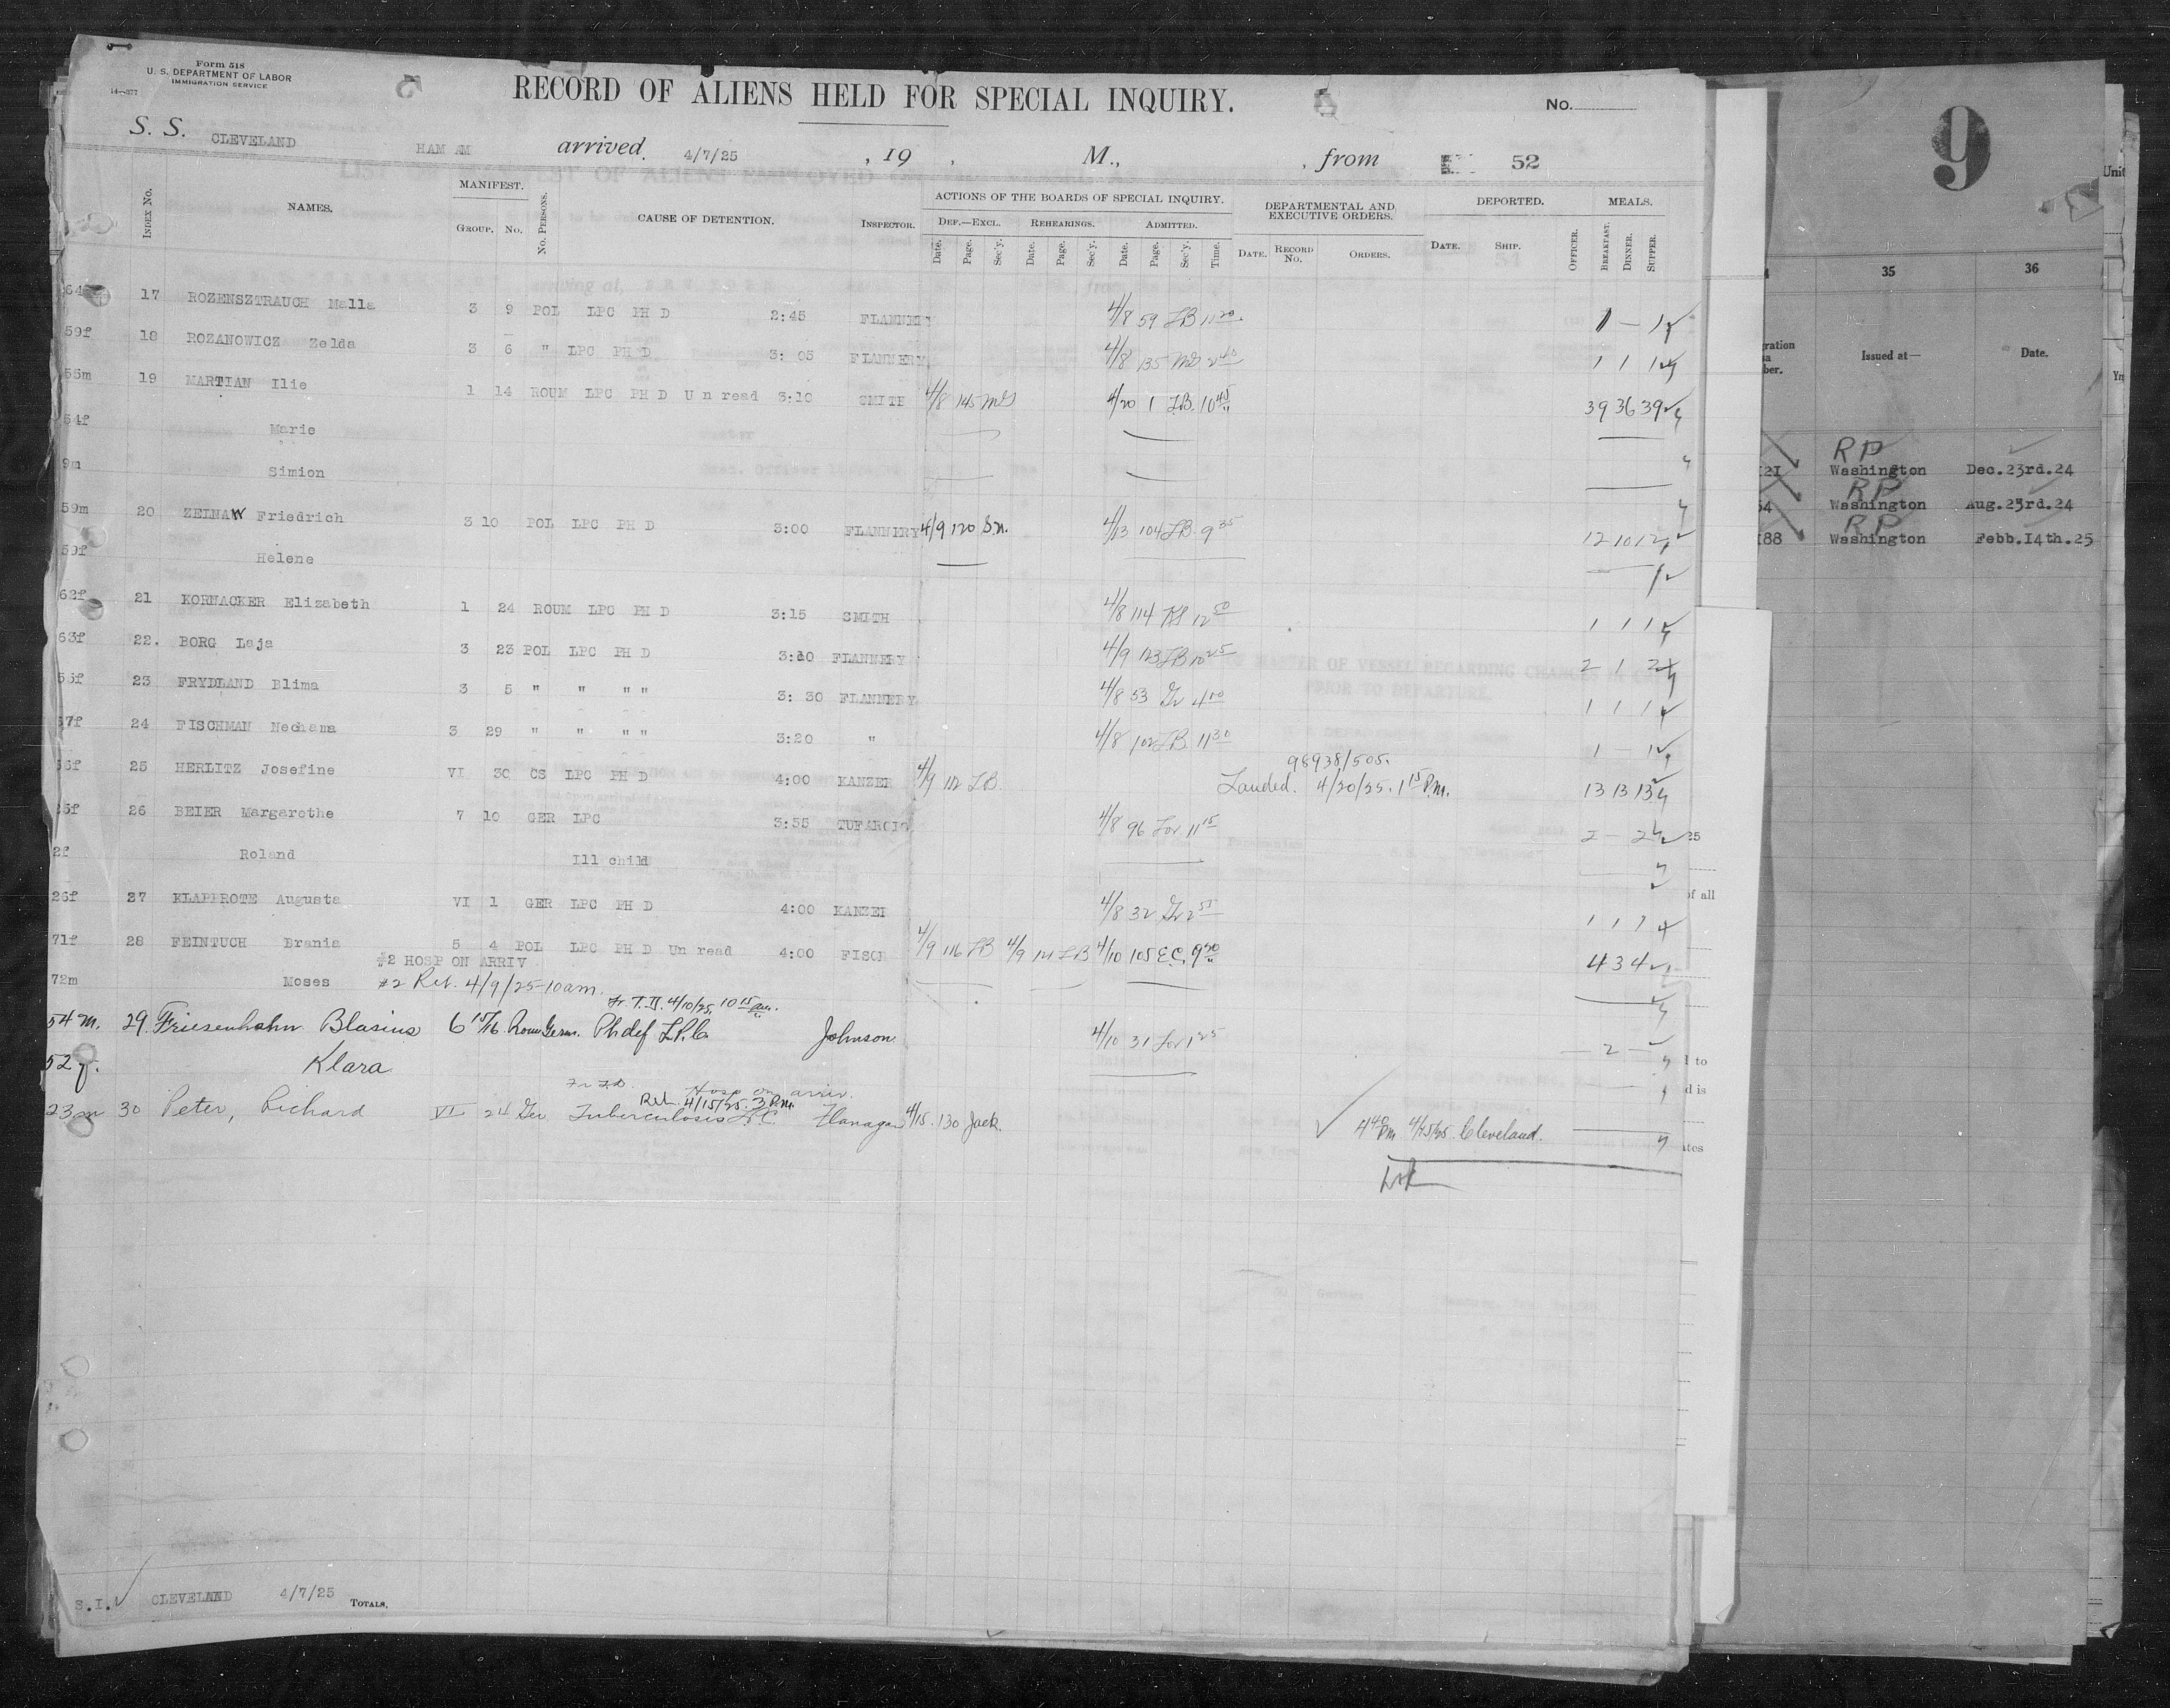 Form 518
U. S. DEPARTMENT OF LABOR
IMMIGRATION SERVICE
14—377
RECORD OF ALIENS HELD FOR SPECIAL INQUIRY.
No.
S. S. CLEVELAND HAM AM arrived 4/7/25, 19 , M., , from 52
INDEX No. NAMES. MANIFEST. GROUP. No. No. PERSONS. CAUSE OF DETENTION. INSPECTOR. ACTIONS OF THE BOARDS OF SPECIAL INQUIRY. DEPARTMENTAL AND EXECUTIVE ORDERS. DEPORTED. MEALS.
DEF.—EXCL. REHEARINGS. ADMITTED.
Date. Page. Sec'y. Date. Page. Sec'y. Date. Page. Sec'y. Time. DATE. RECORD No. ORDERS. DATE. SHIP. OFFICER. BREAKFAST. DINNER. SUPPER.
17 ROZENSZTRAUCH Malla 3 9 POL LPC PH D 2:45 FLANNERY 4/8 59 LB 11 20 1 — 1
59f 18 ROZANOWICZ Zelda 3 6 " LPC PH D 3: 05 FLANNERY 4/8 135 MS 2 40 1 1 1
55m 19 MARTIAN Ilie 1 14 ROUM LPC PH D Un read 3:10 SMITH 4/8 145 MS 4/20 1 LB. 10 45 39 36 39
54f Marie
9m Simion
59m 20 ZEINAW Friedrich 3 10 POL LPC PH D 3:00 FLANNERY 4/9 120 S.N. 4/13 104 LB. 9 35 12 10 12
59f Helene
62f 21 KORNACKER Elizabeth 1 24 ROUM LPC PH D 3:15 SMITH 4/8 114 12 50 1 1 1
63f 22. BORG Laja 3 23 POL LPC PH D FLANNERY 4/9 123 LB 10 45 2 1 2
23 FRYDLAND Blima 3 5 " " " " 3: 30 FLANNERY 4/8 53 Gr 4 10 1 1 1
24 FISCHMAN Nechama 3 29 " " " " 3:20 " 4/8 102 LB. 11 30 1 — 1
98938/505.
25 HERLITZ Josefine VI 30 CS LPC PH D 4:00 KANZER 4/9 112 LB. Landed. 4/20/25. 1 15 P.M. 13 13 13
26 BEIER Margarethe 7 10 GER LPC 3:55 4/8 96 Lor 11 15 2 — 2
2f Roland Ill child
26f 27 KLAPPROTE Augusta VI 1 GER LPC PH D 4:00 KANZER 4/8 32 Gr 2 1 1 1
71f 28 FEINTUCH Brania 5 4 POL LPC PH D Un read 4:00 FISCH 4/9 116 LB 4/9 LB 4/10 105 E.C. 9 50 4 3 4
#2 HOSP ON ARRIV
72m Moses #2 Rel. 4/9/25-10am.
4/10/25, 10 15 am.
54 m. 29. Friesenhahn Blasius 6 15/16. Roum Germ. Ph def L.P.C. Johnson 4/10 31 Lor 1 25 — 2 —
52 f. Klara
Hosp on arriv.
Rel. 4/15/25. 3 P.M.
23 m 30 Peter, Richard VI 24 Ger Tuberculosis L.P.C. Flanagan 4/15. 130 Jack. 4 40 PM 4/15/25 Cleveland.
S.I. CLEVELAND 4/7/25 TOTALS.
9
35 36
Issued at— Date.
RP
Washington Dec.23rd.24
RP
Washington Aug.23rd.24
RP
188 Washington Febb.14th.25